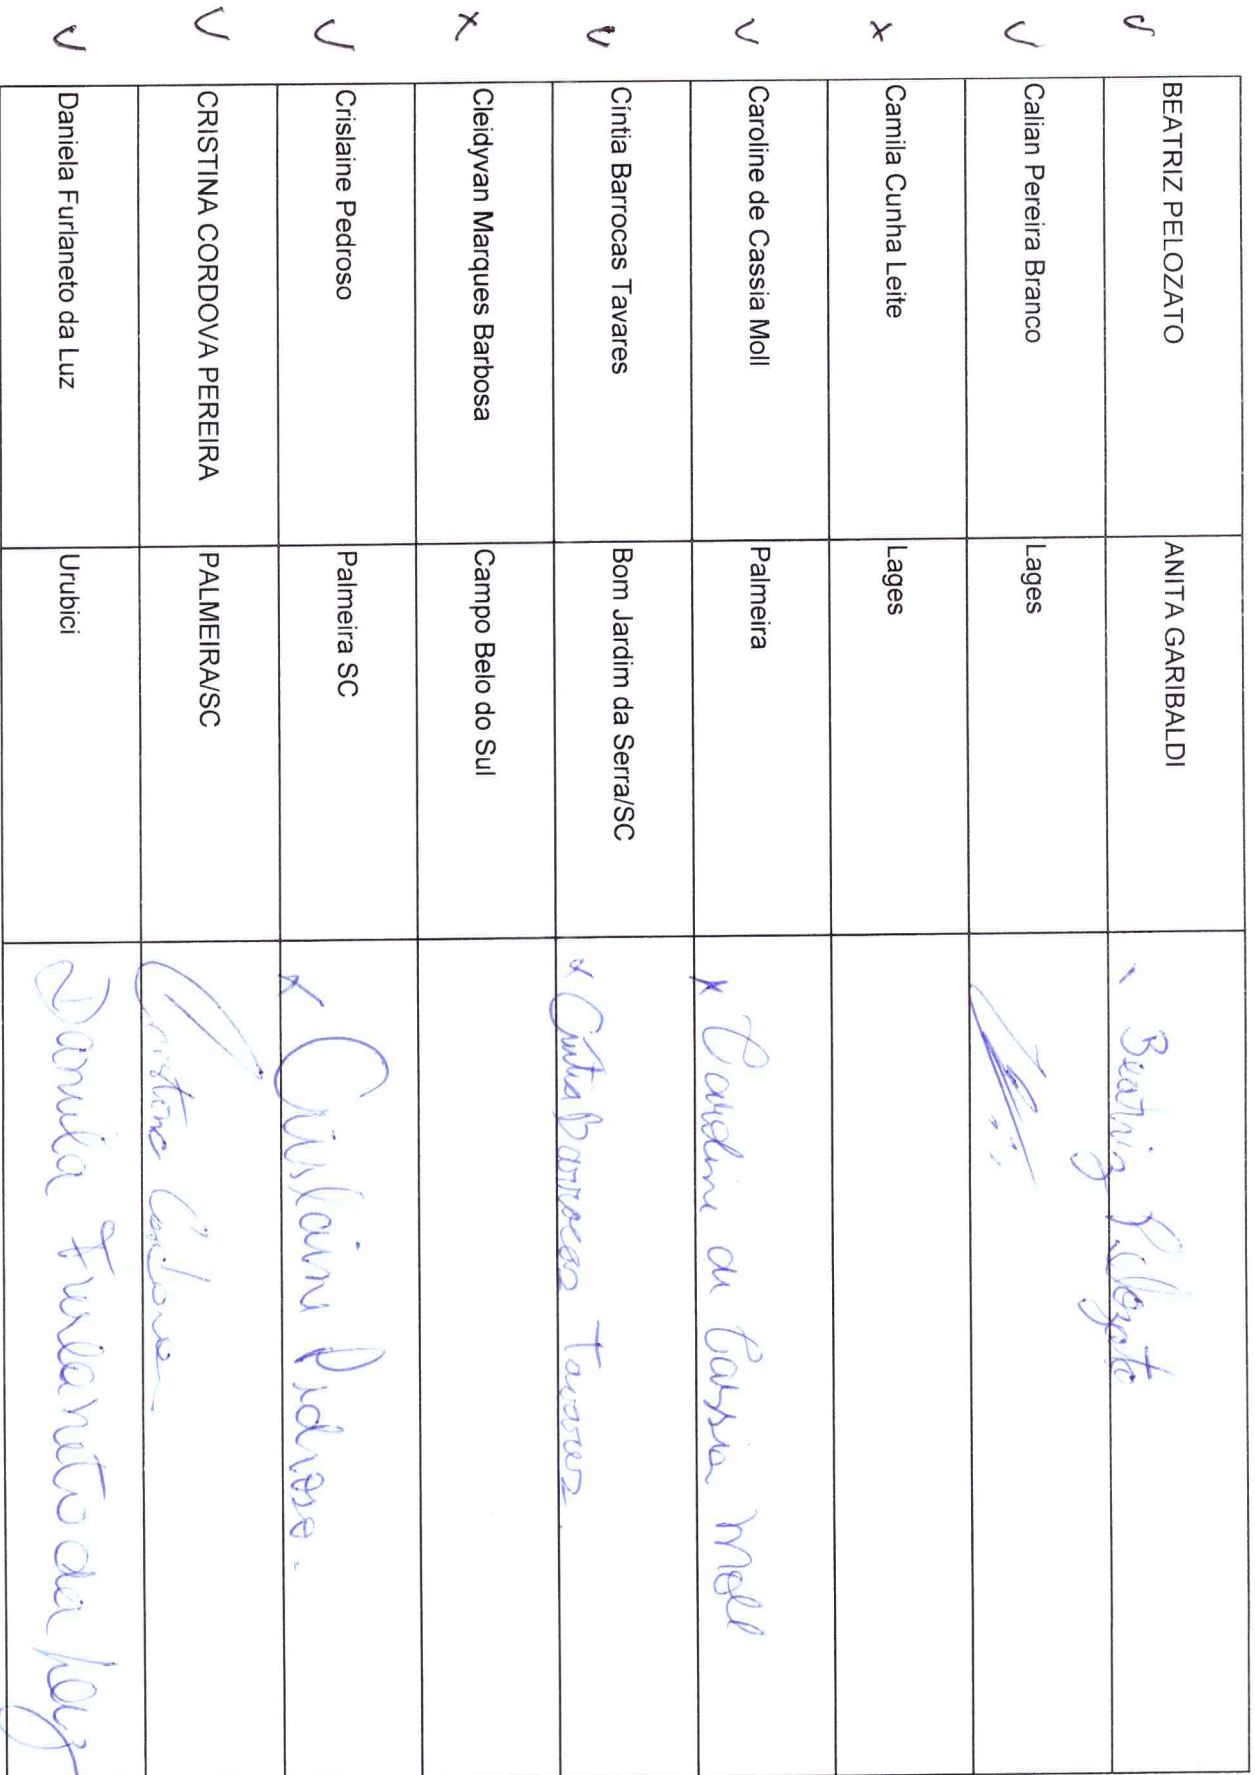 BEATRIZ PELOZATO ANITA GARIBALDI Beatriz Pelozato
Calian Pereira Branco Lages
x Camila Cunha Leite Lages
Caroline de Cassia Moll Palmeira x Caroline de Cassia Moll
Cíntia Barrocas Tavares Bom Jardim da Serra/SC x Cíntia Barrocas Tavares
x Cleidyvan Marques Barbosa Campo Belo do Sul
Crislaine Pedroso Palmeira SC x Crislaine Pedroso.
CRISTINA CORDOVA PEREIRA PALMEIRA/SC Cristina Cordova
Daniela Furlaneto da Luz Urubici Daniela Furlaneto da Luz